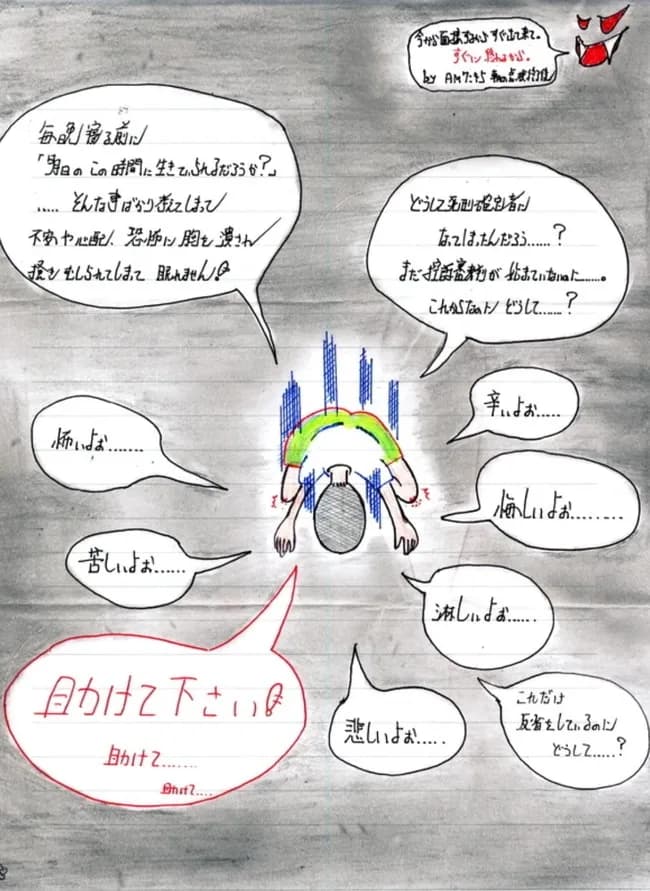 今から面接するからすぐ出て来て。
すぐに終わるから。
by AM7:45
毎晩、寝る前に
「明日の この時間に生きていられるだろうか?」
..... そんな事ばかり考えてしまって
不安や心配、恐怖に胸を潰され
掻きむしられてしまって 眠れません!
どうして死刑確定者に
なってしまったんだろう......?
まだ控訴審裁判が 始まっていないのに.......。
これからなのに どうして......?
辛いよぉ.....
怖いよぉ.......
悔しいよぉ.........
苦しいよぉ......
淋しいよぉ......
助けて下さい!
助けて.......
助けて....
悲しいよぉ.....
これだけ
反省をしているのに
どうして.....?